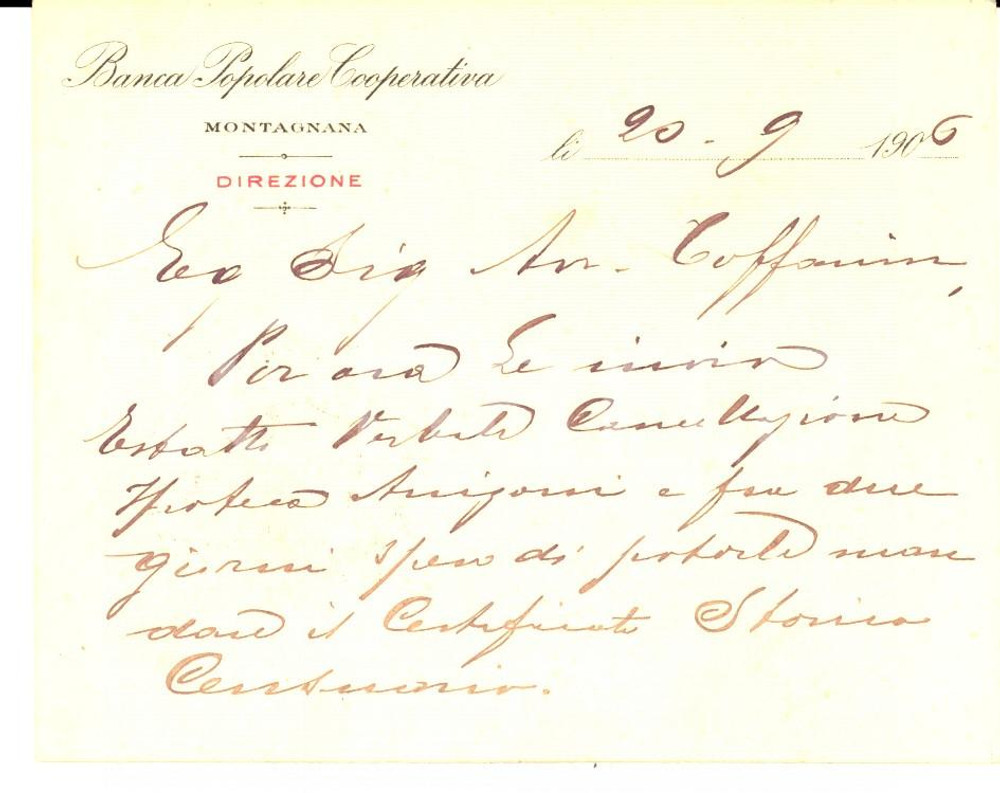 Banca Popolare Cooperativa
MONTAGNANA
DIREZIONE
li 20-9 1906
Eg Sig Avv. Coffanini,
Per ora Le invio
Estratto Verbale Cancellazione
Ipoteca Arrigoni e fra due
giorni spero di poterle man
dare il Certificato Storico
Censuario.